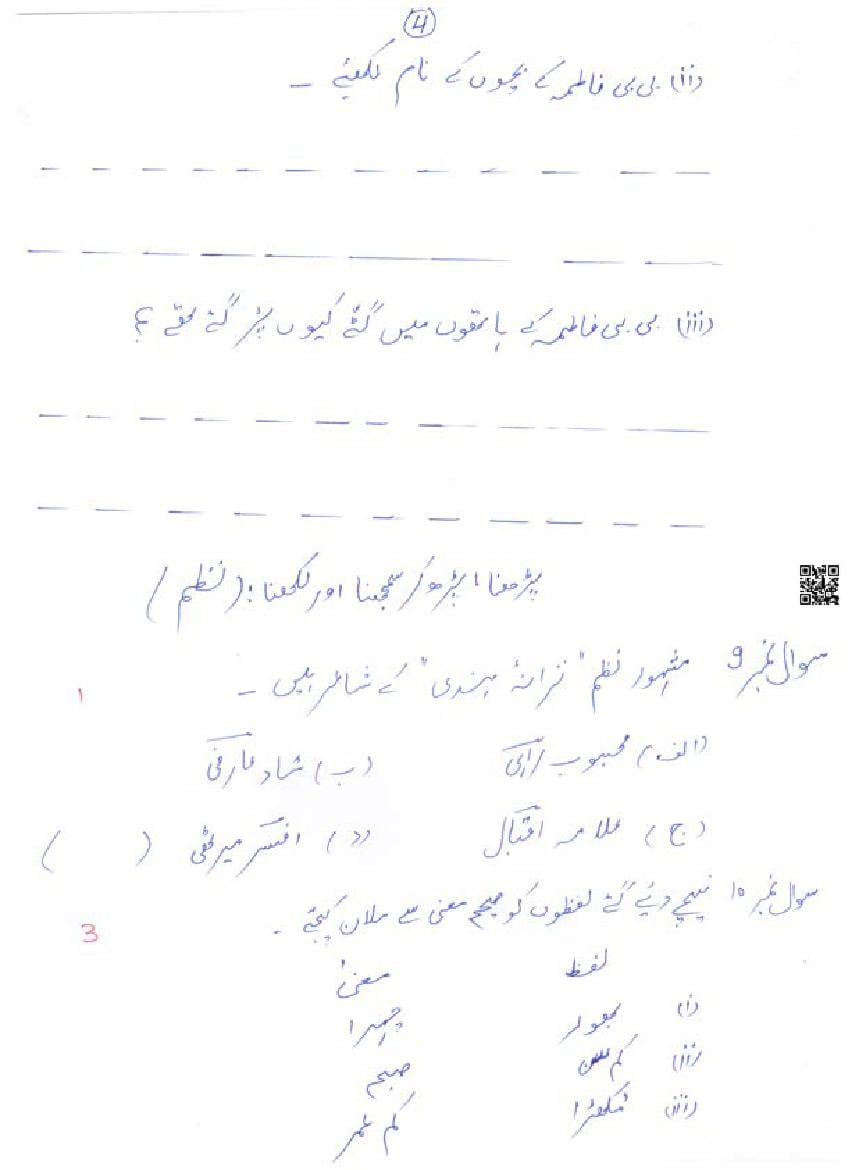 4
(ii) بی بی فاطمہ کے بچوں کے نام لکھیئے ۔
(iii) بی بی فاطمہ کے ہاتھوں میں گٹے کیوں پڑ گئے تھے ؟
پڑھنا ، پڑھ کر سمجھنا اور لکھنا : (نظم)
سوال نمبر 9 مشہور نظم "ترانۂ ہندی" کے شاعر ہیں ۔ 1
(الف) محبوب راہی (ب) شاد عارفی
(ج) علامہ اقبال (د) افسر میرٹھی ( )
سوال نمبر 10 نیچے دیئے گئے لفظوں کو صحیح معنی سے ملان کیجئے ۔ 3
لفظ معنیٰ
(i) بھور چہرا
(ii) کم سن صبح
(iii) مُکھڑا کم عمر